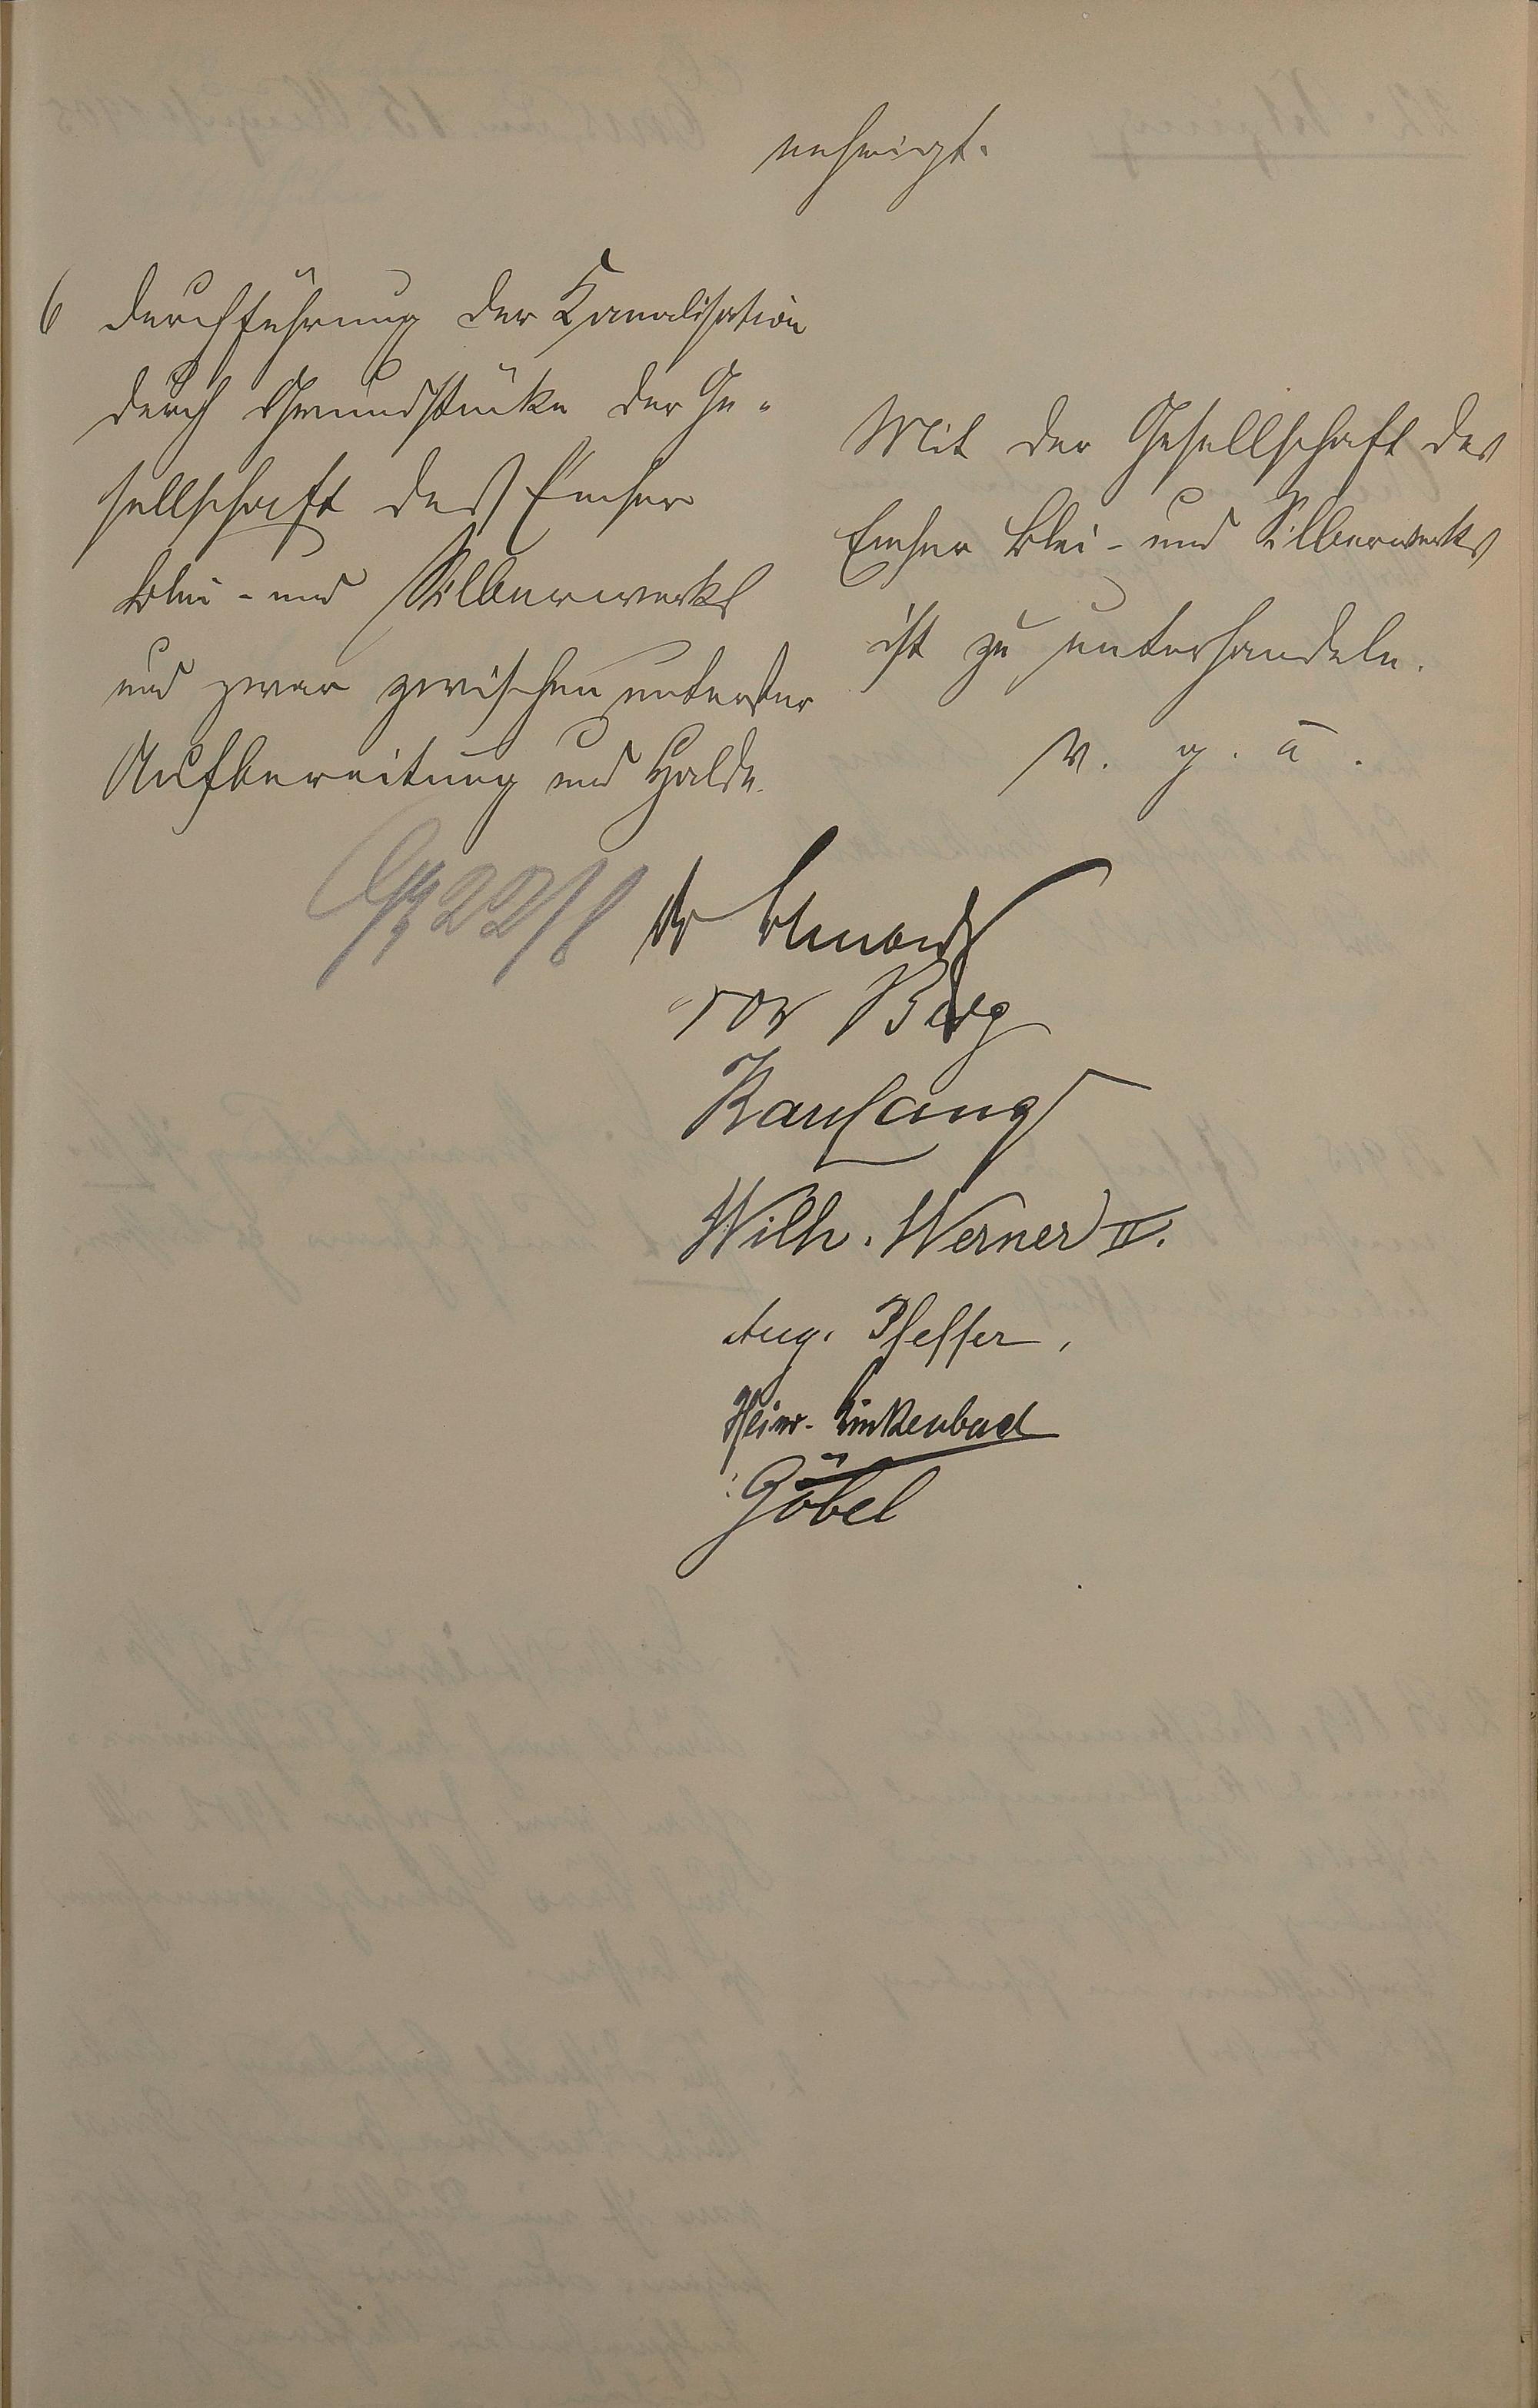 nehmigt.
6 Durchführung der Kanalisation
durch Grundstücke der Ge-
sellschaft des Emser
Blei- und Silberwerks
und zwar zwischen unterster
Aufbereitung und Halde.
Mit der Gesellschaft des
Emser Blei- und Silberwerks
ist zu unterhandeln.
v. g. u.
22/8
Dr
vor Berg
Wilh. Werner II.
Aug. Pfeffer,
Heinr. Linkenbach
Göbel